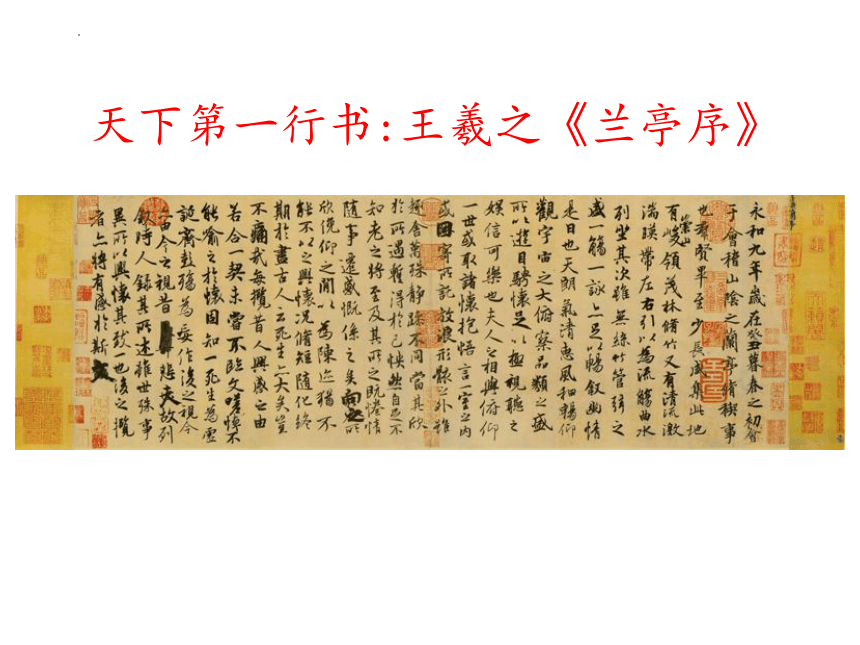 天下第一行书:王羲之《兰亭序》
永和九年歲在癸丑暮春之初會
于會稽山陰之蘭亭脩稧事
也羣賢畢至少長咸集此地
有崇山峻領茂林脩竹又有清流激
湍暎帶左右引以為流觴曲水
列坐其次雖無絲竹管弦之
盛一觴一詠亦足以暢敘幽情
是日也天朗氣清惠風和暢仰
觀宇宙之大俯察品類之盛
所以遊目騁懷足以極視聽之
娛信可樂也夫人之相與俯仰
一世或取諸懷抱悟言一室之內
或因寄所託放浪形骸之外雖
趣舍萬殊靜躁不同當其欣
於所遇蹔得於己怏然自足不
知老之將至及其所之既惓情
隨事遷感慨係之矣向之所
欣俛仰之閒以為陳迹猶不
能不以之興懷況脩短隨化終
期於盡古人云死生亦大矣豈
不痛哉每攬昔人興感之由
若合一契未嘗不臨文嗟悼不
能喻之於懷固知一死生為虛
誕齊彭殤為妄作後之視今
亦由今之視昔悲夫故列
敘時人錄其所述雖世殊事
異所以興懷其致一也後之攬
者亦將有感於斯文